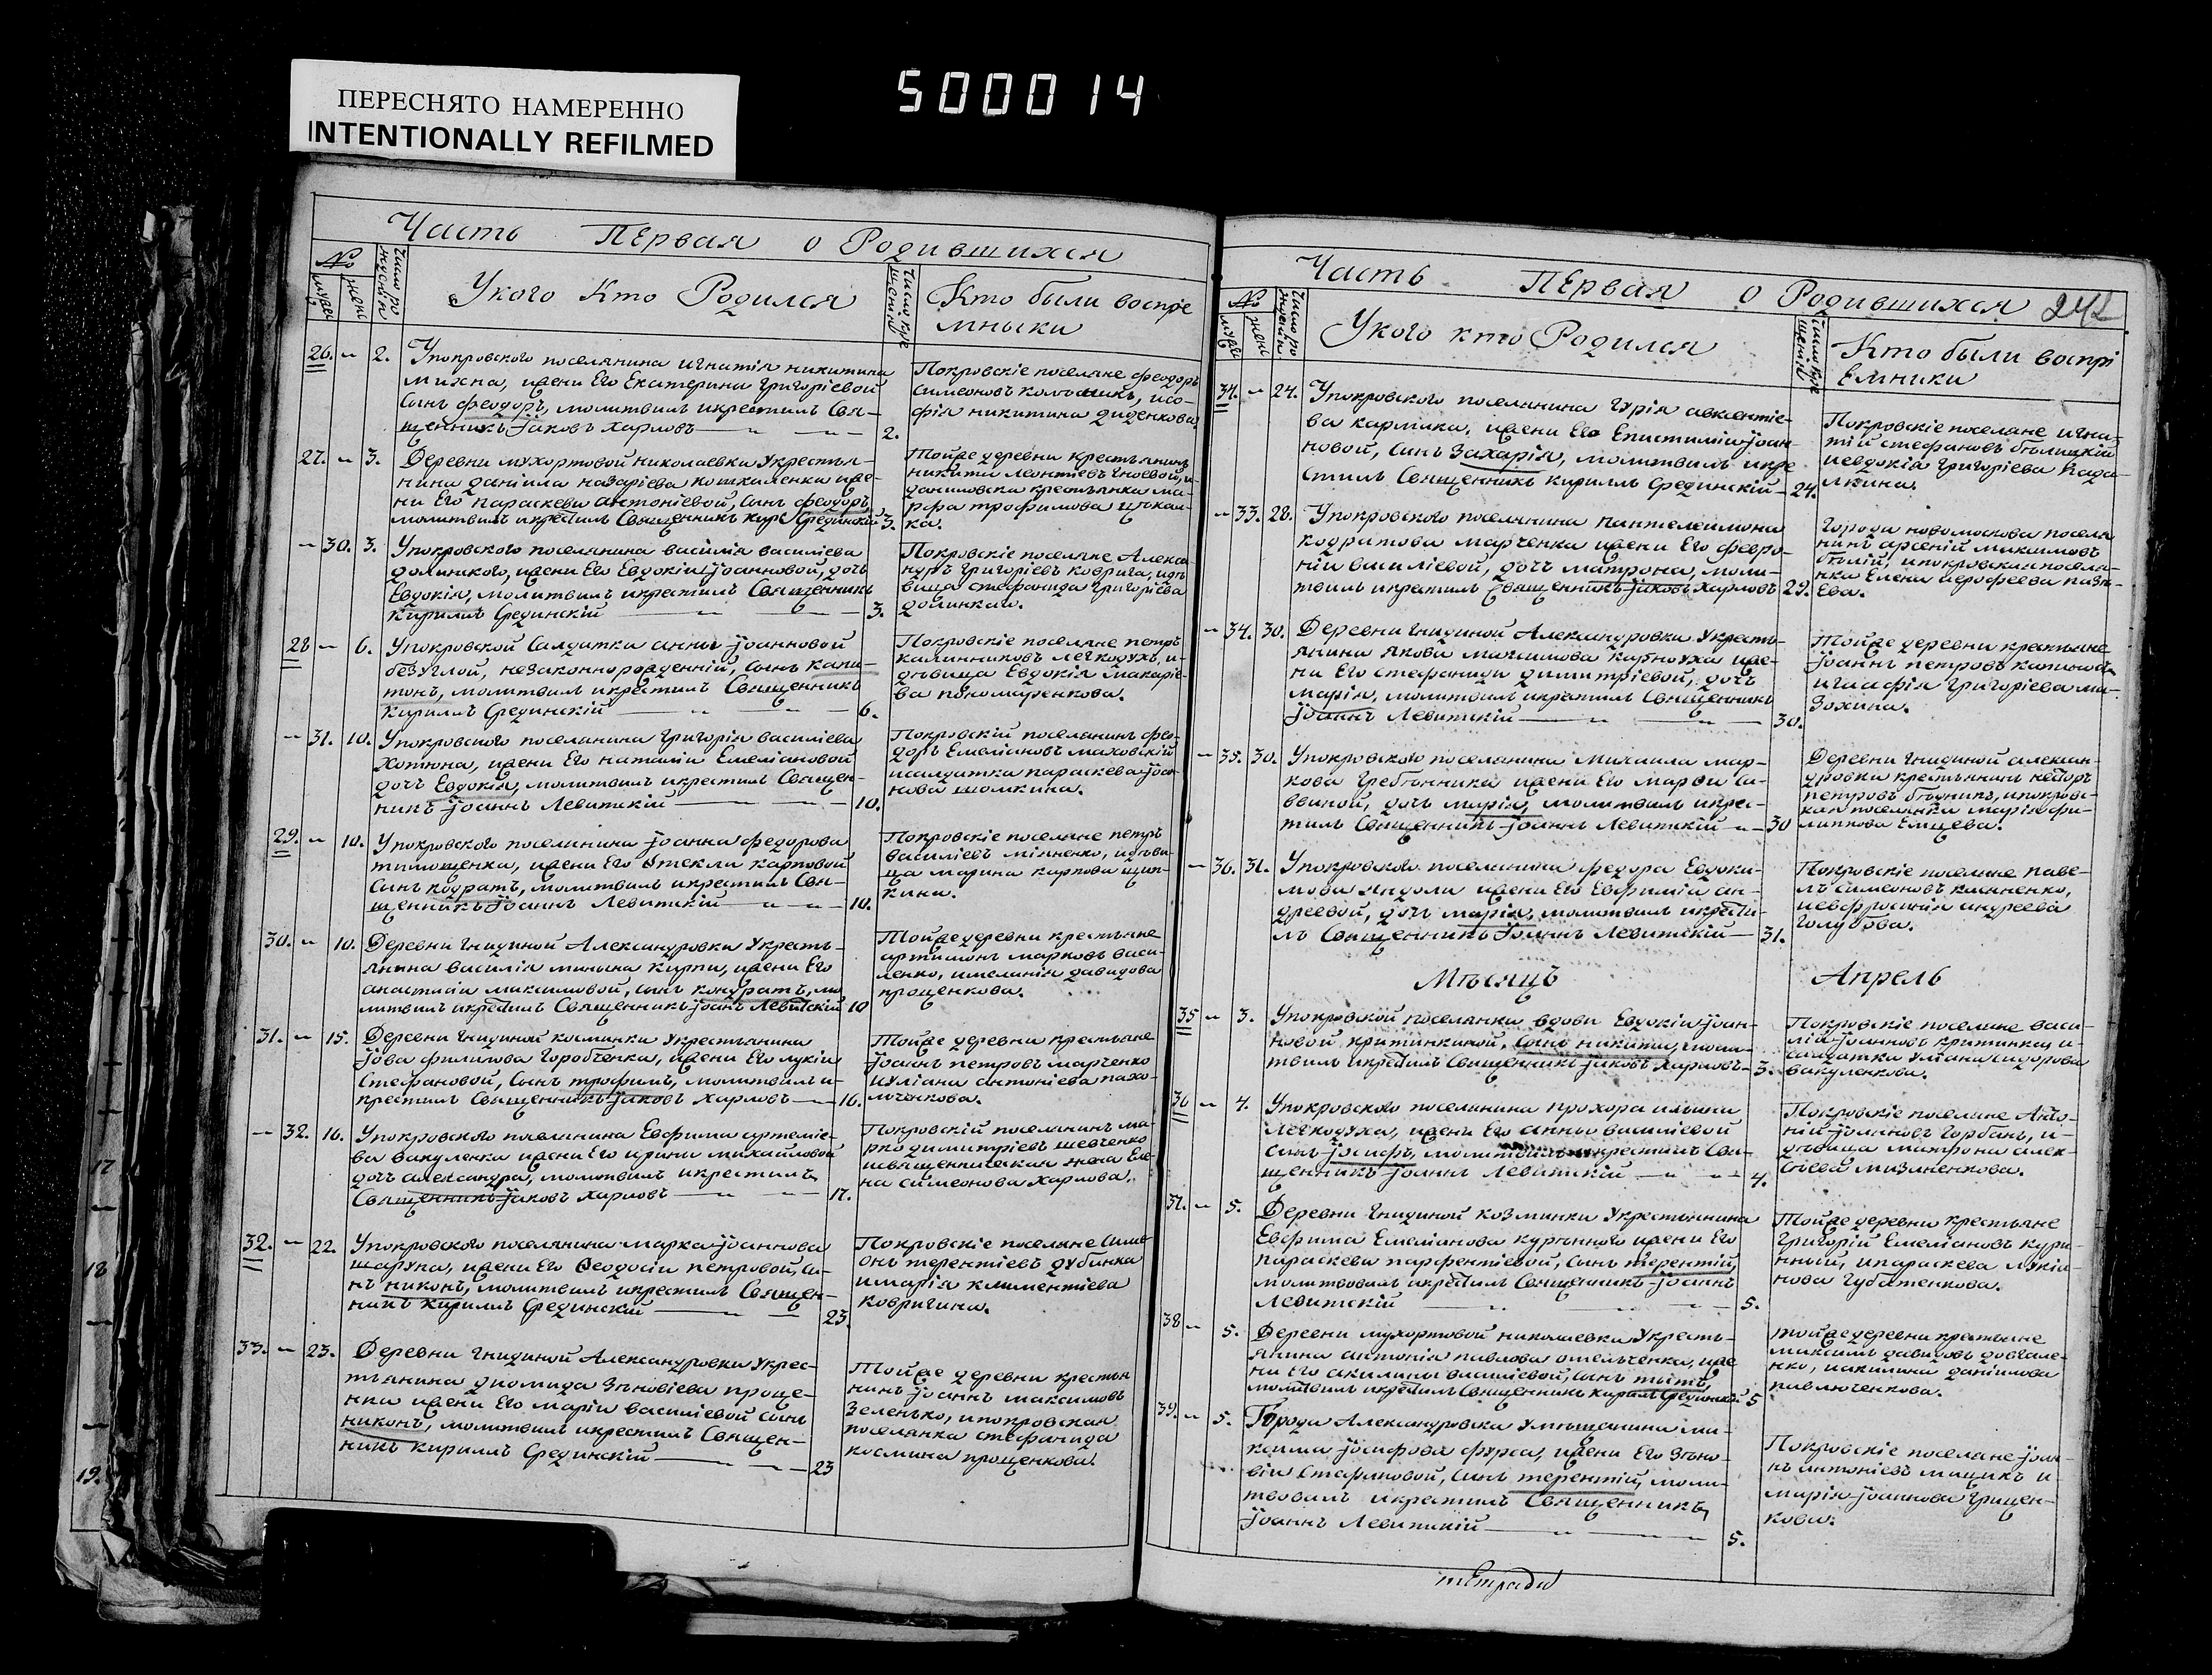 ПЕРЕСНЯТО НАМЕРЕННО
INTENTIONALLY REFILMED
500014
Часть Первая о Родившихся
№
Число рождения
У кого Кто Родился
Число крещения
Кто были воспре
мныки
26. – 2. Упокровского поселянина игнатія никитина
михна, ижени Его Екатерина Григоріевой
Сынъ феодоръ, молитвилъ икрестилъ Свя-
щенникъ Іаковъ Харловъ 2.
Покровскіе поселяне феодоръ
Симеоновъ, исо-
фія никитина диденкова.
27. – 3. Деревни мухортовой николаевки Укрестья-
нина даніила назаріева кошкаленка иже-
ни Его параскеви антоніевой, Сынъ феодоръ,
молитвилъ икрестилъ Священникъ Кирил Срединскій 3.
Тойже деревни крестьянинъ
никита леонтіевъ, и
даниловска крестьянка ма-
рфа трофимова
ка.
– 30. 3. Упокровского поселянина василія василіева
долинского, ижени Его Евдокіи Іоанновой, дочь
Евдокія, молитвилъ икрестилъ Священникъ
Кириллъ Срединскій 3.
Покровскіе поселяне Алекса-
ндръ Григоріевъ коврига, идѣ-
вица стефанида Григоріева
долинкая.
28 – 6. Упокровской Салдатки анны Іоанновой
безуглой, незаконнорожденній, Сынъ капи-
тонъ, молитвилъ икрестилъ Священникъ
Кириллъ Срединскій 6.
Покровскіе поселяне петръ
калинниковъ легкодухъ, и-
дѣвица Евдокія макаріе-
ва пономаренкова.
– 31. 10. Упокровского поселянина Григорія василіева
Хотюна, ижени Его наталіи Емеліановой
дочь Евдокія, молитвилъ икрестилъ Священ-
никъ Іоаннъ Левитскій 10.
Покровскій поселянинъ фео-
доръ Емеліановъ маховскій
исалдатка параскева Іоан-
нова шомкина.
29. – 10. Упокровского поселянина Іоанна федорова
тимощенка, ижени Его Ѳтекли карповой
Сынъ кодратъ, молитвилъ икрестилъ Свя-
щенникъ Іоаннъ Левитскій 10.
Покровскіе поселяне петръ
василіевъ мінненко, идѣви-
ца марина карпова щип-
кина.
30. – 10. Деревни Гнидиной Александровки Укресть-
янина василія минына Курпи, ижени Его
анастасіи максимовой, Сынъ кондратъ, мо
литвилъ икрестилъ Священникъ Іоанъ Левитскій 10
Тойже деревни крестьяне
артимонъ марковъ васи-
ленко, имеланія давидова
прощенкова.
31. – 15. Деревни Гнидиной космински Укрестьянина
Іова филипова Горобченка, ижени Его лукіи
Стефановой, Сынъ трофимъ, молитвилъ и-
крестилъ Священникъ Іаковъ Харловъ 16.
Тойже деревни крестьяне
Іоанъ петровъ марченко
иуліана антоніева пахо-
люченкова.
– 32. 16. Упокровского поселянина Евфима артеміе-
ва вакуленка ижени Его ирины михайловой
дочь александра, молитвилъ икрестилъ
Священникъ Іаковъ Харловъ 17.
Покровскій поселянинъ ма-
рко димитріевъ шевченко
исвященническая жена Еле-
на симеонова харлова.
32. – 22. Упокровского поселянина марка Іоаннова
шаруна, ижени Его Ѳеодосіи петровой, Сы-
нъ никонъ, молитвилъ икрестилъ Священ-
никъ Кириллъ Срединскій 23.
Покровскіе поселяне Симе-
онъ терентіевъ дубинка
имарія климентіева
ковригина.
33. – 23. Деревни Гнидиной Александровки Укрес-
тьянина диомида Зѣновіева проще-
нка ижени Его маріи василіевой Сынъ
никонъ, молитвилъ икрестилъ Священ-
никъ Кириллъ Срединскій 23
Тойже деревни крестья
нинъ Іоаннъ максимовъ
Зеленько, ипокровская
поселянка стефанида
космина прощенкова.
Часть Первая о Родившихся 242
№
Число рождения
У кого кто Родился
Число крещения
Кто были воспрі
Емники
34. – 24. Упокровского поселянина Гурія авксентіе-
ва кармака, ижени Его Епистиміи Іоан-
новой, Сынъ Захарія, молитвилъ икре
стилъ Священникъ Кириллъ Срединскій 24.
Покровскіе поселяне игна-
тій стефановъ бѣлицкій
иевдокія Григоріева
лкина.
– 33. 28. Упокровского поселянина пантелеимона
кодратова марченка ижени Его февро-
ніи василіевой, дочь матрона, моли-
твилъ икрестилъ Священникъ Іаковъ Харловъ 29.
Города новомосковска поселя
нинъ арсеній максимовъ
бѣлій, ипокровская поселя-
нка Елена иерофеева
Ева.
– 34. 30. Деревни Гнидиной Александровки Укресть-
янина якова максимова карноуха иже-
ни Его стефаниди димитріевой, дочь
марія, молитвилъ икрестилъ Священникъ
Іоаннъ Левитскій 30.
Тойже деревни крестьяне
Іоаннъ петровъ
игаафія Григоріева ма-
зохина.
– 35. 30. Упокровского поселянина Михаила мар-
кова Гребѣнника ижени Его марфи Са-
ввиной, дочь марія, молитвилъ икрес-
тилъ Священникъ Іоаннъ Левитскій 30
Деревни Гнидиной алексан-
дровки крестьянинъ несторъ
петровъ бѣдникъ, ипокровс-
кая поселянка марія фи-
липпова Емцева.
– 36. 31. Упокровского поселянина федора Евдоки-
мова яндоли ижени Его Евфиміи ан-
дреевой, дочь марія, молитвилъ икрести-
лъ Священникъ Іоаннъ Левитскій 31.
Покровскіе поселяне паве-
лъ Симеоновъ касяненко,
иевфросинія андреева
Голубова.
Мѣсяцъ Апрель
35 – 3. Упокровской поселянки вдови Евдокіи Іоан-
новой критинкиной, Сынъ никита, моли-
твилъ икрестилъ Священникъ Іаковъ Харловъ 3.
Покровскіе поселяне васи-
лій Іоанновъ критинкац и-
салдатка Уліана Сидорова
вакуленкова.
36 – 4. Упокровского поселянина прохора ильина
Легкодуха, ижени Его анны василіевой
Сынъ Іосифъ, молитвилъ икрестилъ Свя-
щенникъ Іоаннъ Левитскій 4.
Покровскіе поселяне Анто-
ній Іоанновъ Горбань, и-
дѣвица матрона алек-
сіева мизяненкова.
37. – 5. Деревни Гнидиной козминки Укрестьянина
Евфима Емеліанова курѣнного ижени Его
параскеви парфентіевой, Сынъ терентій,
молитвовалъ икрестилъ Священникъ Іоаннъ
Левитскій 5.
Тойже деревни крестьяне
Григорій Емеліановъ курѣ-
нный, ипараскева лукіа-
нова Губатенкова.
38 – 5. Деревни мухортовой николаевки Укресть-
янина антонія павлова омельченка, иже
ни Его акилины василіевой, Сынъ титъ,
молитвилъ икрестилъ Священникъ Кирилъ Срединскій 5
тойже деревни крестьяне
максимъ давидовъ довгале-
нко, иакилина данілова
павлюченкова.
39. – 5. Города Александровска Умѣщанина ма-
ксима Іосифова фурса, ижени Его Зѣно-
віи Стефановой, Сынъ терентій, моли-
твовалъ икрестилъ Священникъ
Іоаннъ Левитскій 5.
Покровскіе поселяне Іоан-
нъ антоніевъ мацикъ и
марія Іоаннова Грицен-
кова.
тетради
17
18
19.